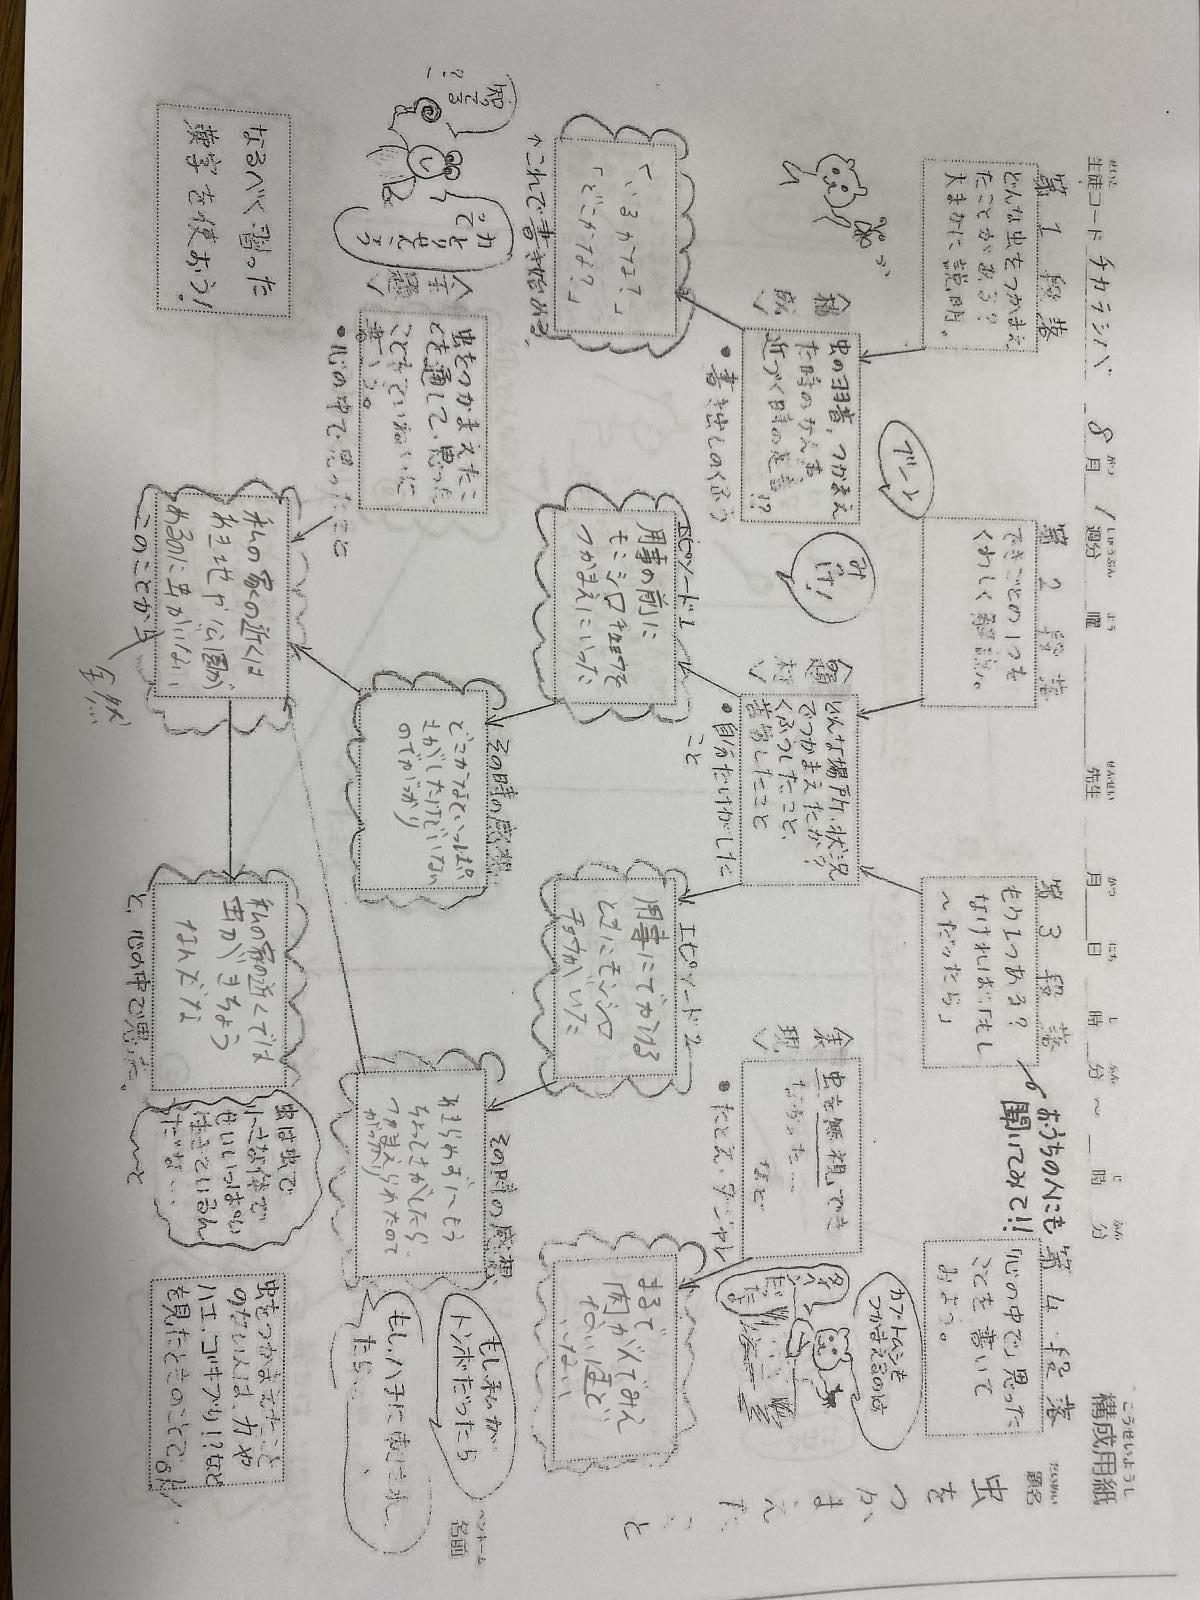 構成用紙
こうせいようし
生徒コード チカラシバ 8月 1週分 曜 先生 月 日 時 分 ~ 時 分
せいと がつ しゅうぶん よう せんせい がつ にち じ ふん じ ふん
題名
だいめい
虫をつかまえたこと
ペンネーム
名前
第1段落
どんな虫をつかまえ
たことがある?
大まかに説明。
第2段落
できごとの1つを
くわしく解説。
第3段落
もう1つある?
なければ「もし
~だったら」
おうちの人にも
聞いてみて!!
第4段落
「心の中で」思った
ことを書いて
みよう。
ブーン
みっけ!
カブトムシを
つかまえるのは
<構成>
虫の羽音、つかまえ
た時のかん声、
近づく時の足音!?
・書き出しのくふう
<題材>
どんな場所、状況
でつかまえたか?
くふうしたこと、
苦労したこと
・自分だけがした
こと
<表現>
虫を無視でき
なかった…
など
・たとえ・ダジャレ
「いるかなぁ?」
「どこかなぁ?」
↑これで書き始める。
エピソード1
用事の前に
モンシロチョウを
つかまえにいった
エピソード2
用事にでかける
ときにモンシロ
チョウがいた
まるで
肉がんでみえ
ないほど
いない
知ってる?
<主題>
虫をつかまえたこ
とを通して、思った
ことをていねいに
書こう。
・心の中で思ったこと
その時の感想
どこかなといっぱい
さがしたけどいない
のでがっかり
その時の感想
あきらめずにもう
ちょっとさがしたら、
つかまえられたので
がっかり
もし私が
トンボだったら
もし、ハチに
たら…
なるべく習った
漢字を使おう!
私の家の近くは
あき地や公園が
あるのに虫がいない
このことから
全然
私の家の近くでは
虫がきちょう
なんだな
と、心の中で思った。
虫は虫で
小さな体で
せいいっぱい
生きているん
だな…
~と
虫をつかまえたこと
のない人は、カや
ハエ、ゴキブリ!?など
を見たときのことでOK